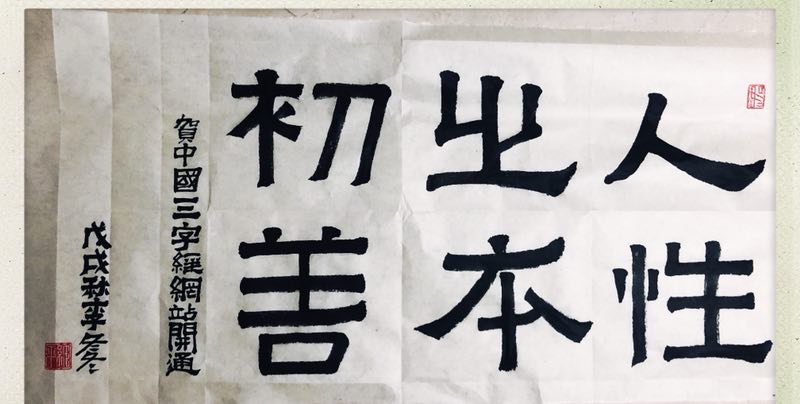 人之初
性本善
賀中國三字經網站開通
戊戌秋李